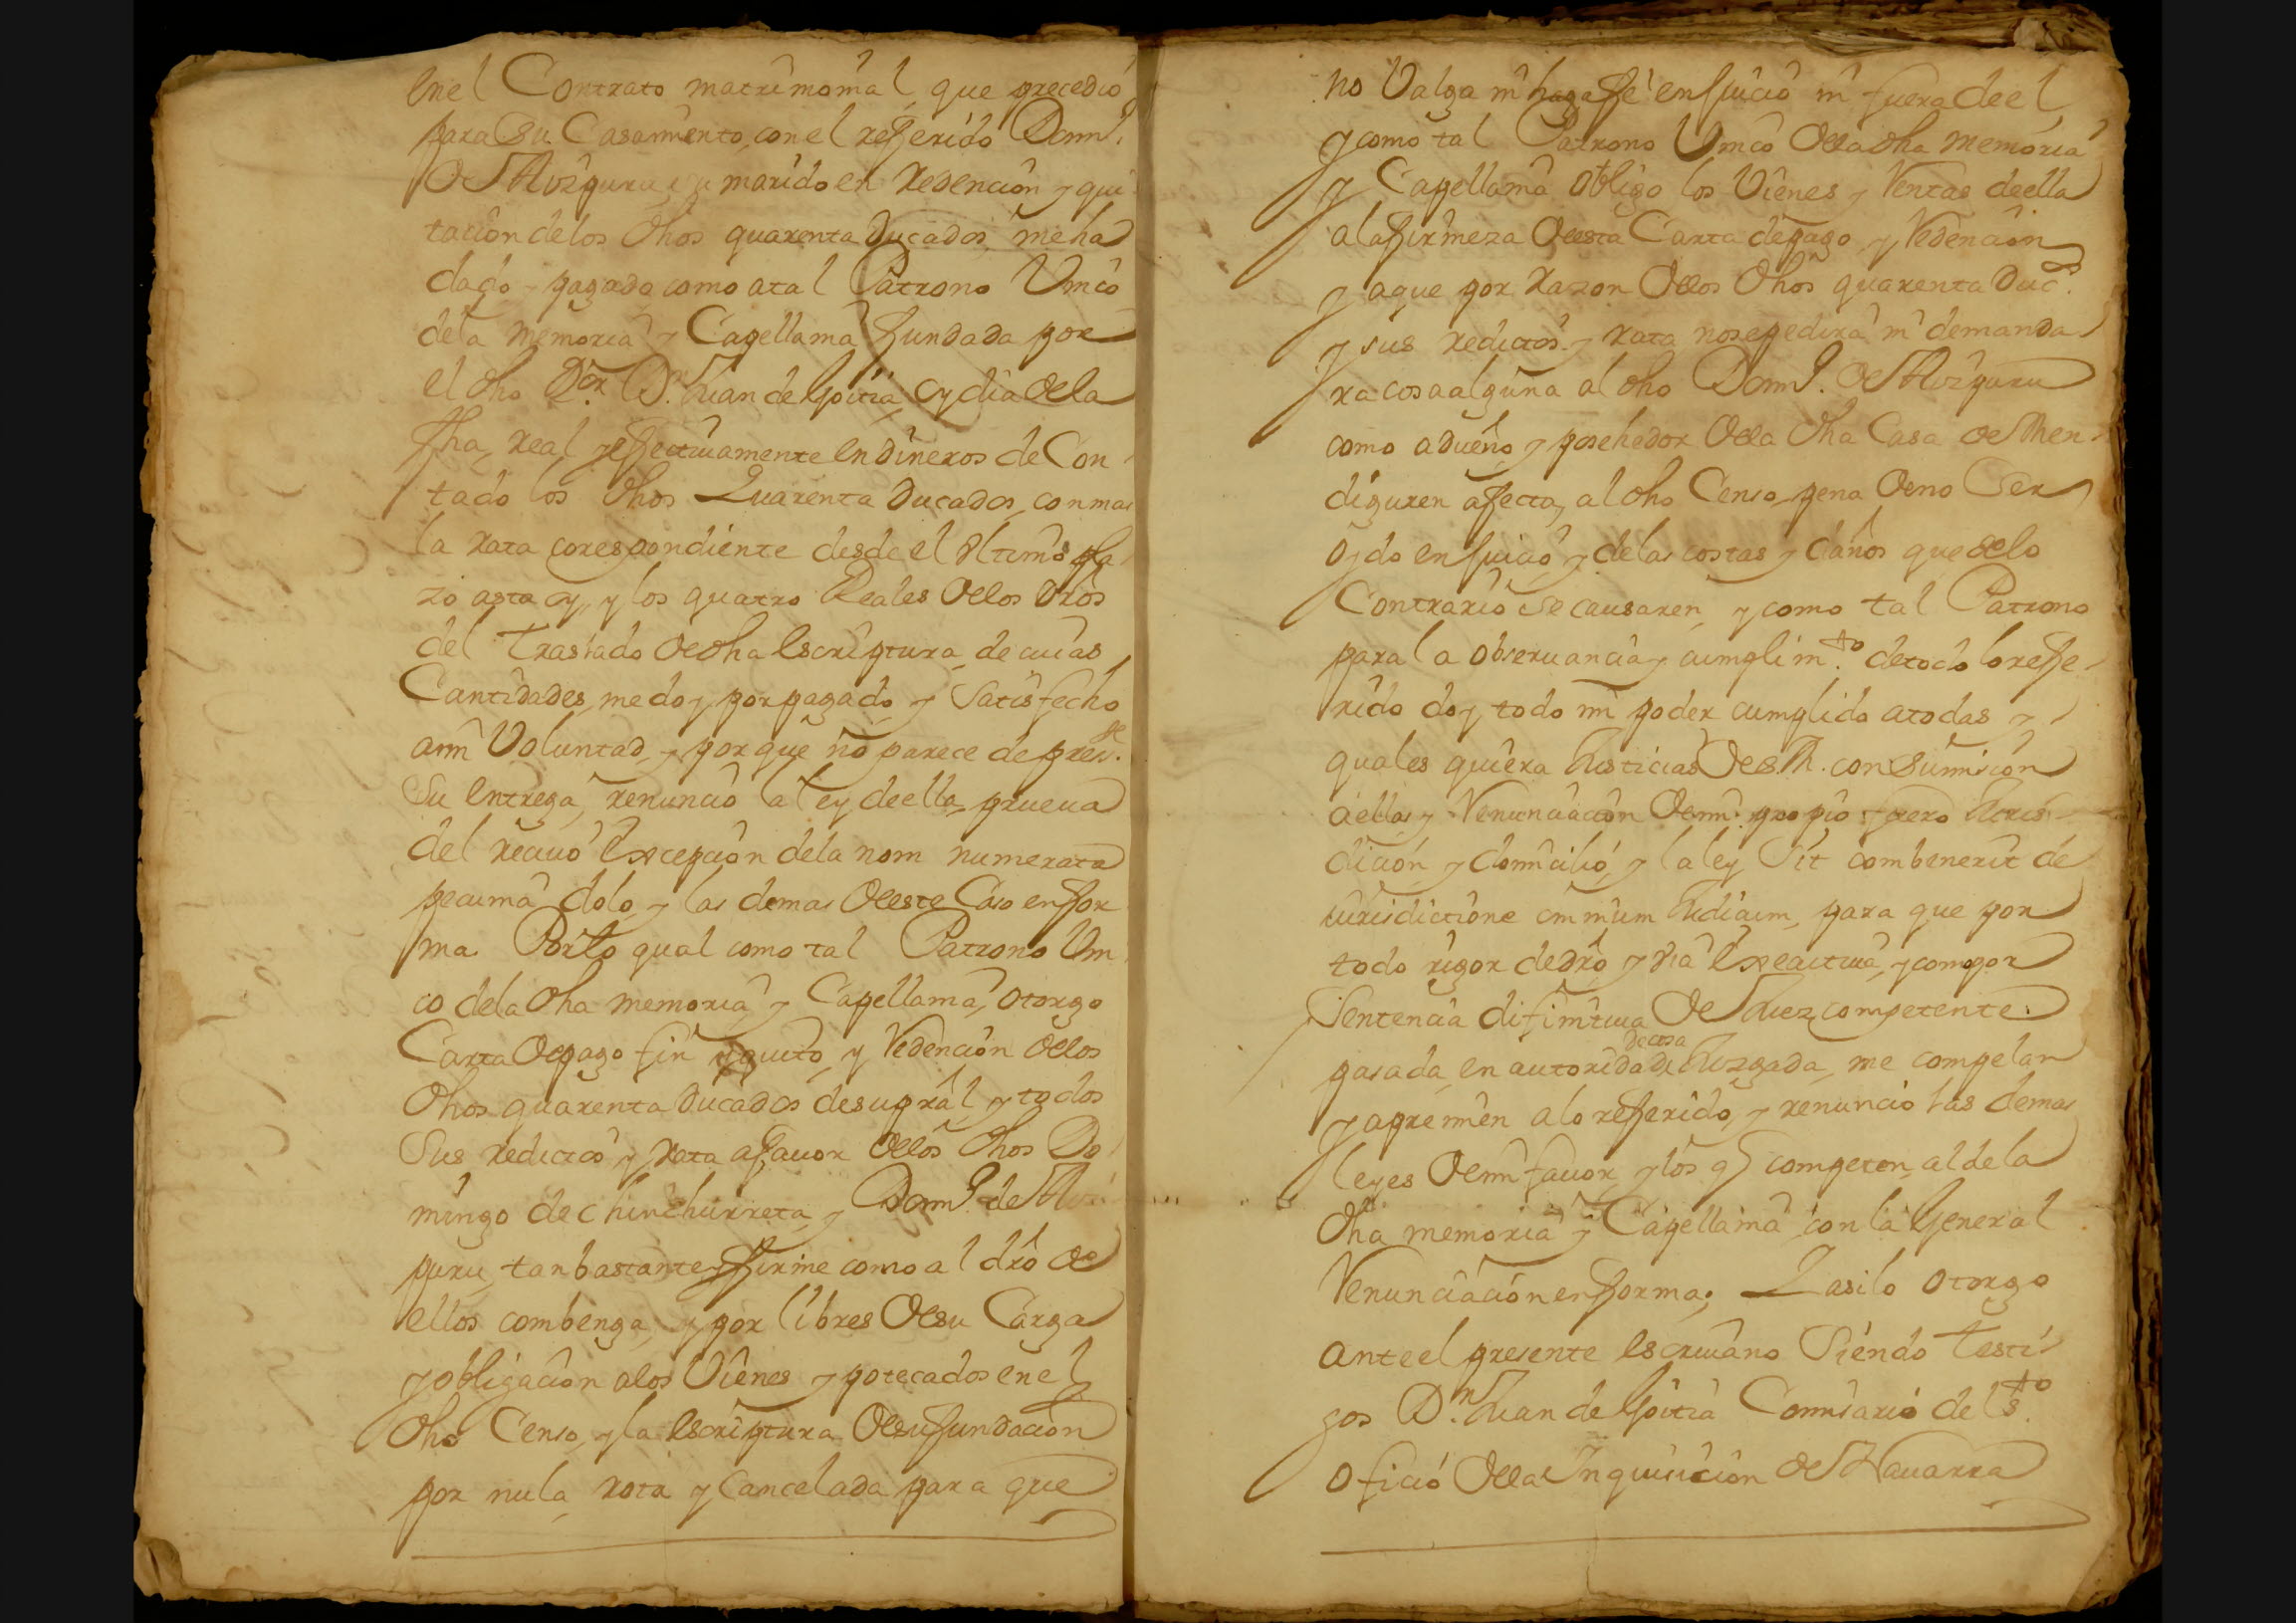 enel Contrato matrimonial, que precedio
para Su Casamiento, con el refferido Domin.
de Auzpuru, su marido en Redencion y qui
tacion delos dhos quarenta Ducados, me ha
dado y pagado como atal Patrono Unico
dela memoria y Capellania fundada por
el dho D.or D.n Juan de Goitia, oy dia dela
fha, real y effectivamente en dineros de Con
tado los dhos Quarenta Ducados, con mas
la rata corespondiente desde el Vltimo pla
zo asta oy, y los quatro Reales dellos drôs
del Traslado de dha escriptura, de cuias
Cantidades, me doy por pagado y Satisfecho
ami Voluntad, y por que no parece de pres.te
Su entrega, renuncio la ley de ella, prueua
del reciuo excepcion dela nom numerata
pecunia dolo, y las demas deeste Caso enfor
ma Porlo qual como tal Patrono Uni
co dela dha memoria y Capellania, otorgo
Carta depago fin y quito, y Redencion dellos
dhos quarenta Ducados desuprâl y todos
Sus redictos y Rata afauor dellos dhos Do
mingo de chinchurreta, y Domi.o de Auz
puru, tan bastante y ffirme como al drô de
ellos combenga, y por libres desu Carga
y obligacion alos Vienes ypotecados en el
dho Censo, y la escriptura desu fundacion
por nula, rota y Cancelada para que
no Valga ni haga ffe en Juicio ni fuera de el
y como tal Patrono Unico della dha memoria
y Capellania obligo los Vienes y Rentas de ella
ala firmeza deesta Carta depago y Redencion
y aque por Razon dellos dhos quarenta Duc.s
y sus redictos y rata nose pedira ni demanda
ra cosa alguna al dho Domi.o de Auzpuru
como a dueño y posehedor della dha Casa de Men
diguren afecta, al dho Censo, pena deno Ser
oydo en Juicio, y delas costas y daños que delo
Contrario Se causaren, y como tal Patrono
para la obseruancia y cumplim.to de todo lo reffe
rido doy todo mi poder cumplido a todas y
quales quiera Justicias de S.M. con Sumision
aellas y Renunciacion demi propio fuero Juris
dicion y domicilio, y la ley Sit combenerit de
iurisdictione omnium Judicum, para que por
todo rigor de drô y via executiua, y como por
Sentencia difinitiua de Juez competente
decosa
pasada en autoridad Juzgada, me compelan
y apremien alo refferido, y renuncio las demas
leyes demi fauor y los q competen, al dela
dha memoria y Capellania con la General
Renunciacion en fforma, Y asilo otorgo
ante el presente escriuano Siendo testi
gos D.n Juan de Goitia Comisario del S.to
oficio della Inquisicion de Nauarra